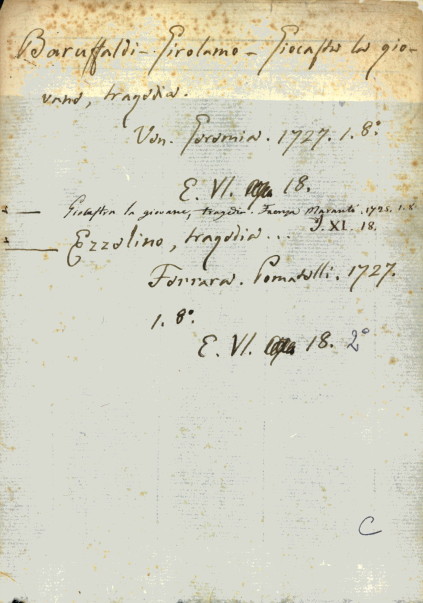 Baruffaldi - Girolamo - Giocasta la gio-
vane, tragedia.
Ven. Geremia. 1727. 1. 8°.
E. VI. 18.
Giocastra la giovane, tragedia. Faenza Maranti. 1725. 1. 8
J. XI. 18.
Ezzelino, tragedia...
Ferrara. Pomatelli. 1727.
1. 8°.
E. VI. 18. 2°
C